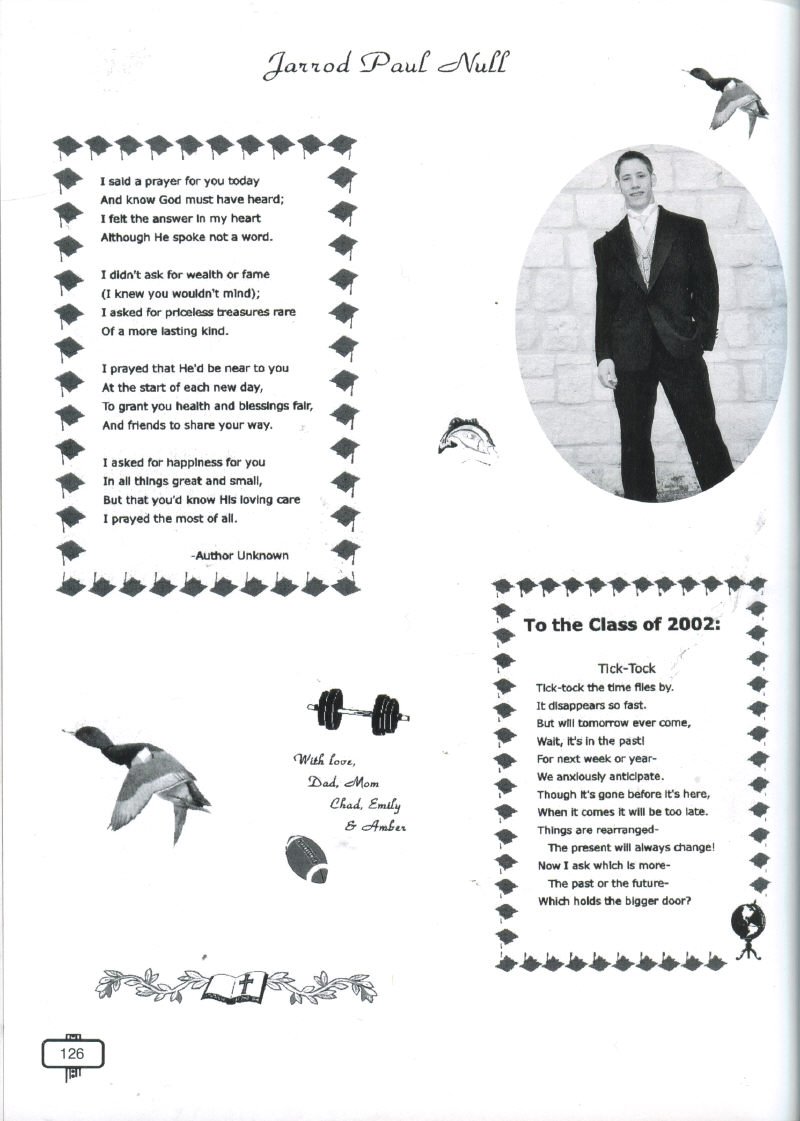 Jarrod Paul Null
I said a prayer for you today
And know God must have heard;
I felt the answer in my heart
Although He spoke not a word.
I didn't ask for wealth or fame
(I knew you wouldn't mind);
I asked for priceless treasures rare
Of a more lasting kind.
I prayed that He'd be near to you
At the start of each new day,
To grant you health and blessings fair,
And friends to share your way.
I asked for happiness for you
In all things great and small,
But that you'd know His loving care
I prayed the most of all.
-Author Unknown
To the Class of 2002:
Tick-Tock
Tick-tock the time flies by.
It disappears so fast.
But will tomorrow ever come,
Wait, it's in the past!
For next week or year-
We anxiously anticipate.
Though it's gone before it's here,
When it comes it will be too late.
Things are rearranged-
The present will always change!
Now I ask which is more-
The past or the future-
Which holds the bigger door?
With love,
Dad, Mom
Chad, Emily
& Amber
126